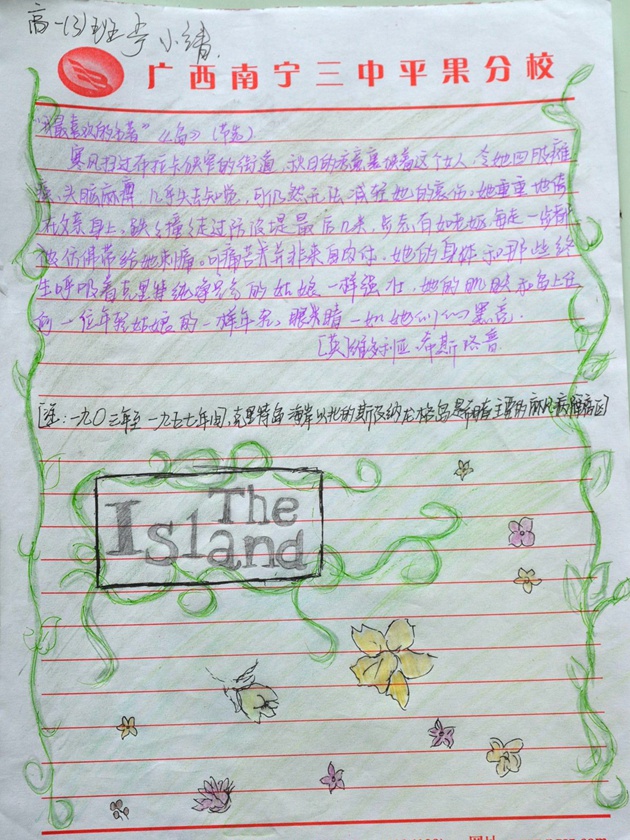 高一(3)班 李小靖
广西南宁三中平果分校
"我最喜欢的名著"《岛》(节选)
寒风扫过布拉卡狭窄的街道,秋日的寒意裹挟着这个女人,令她四肢瘫
痪,头脑麻痹,几乎失去知觉,可仍然无法减轻她的哀伤。她重重地倚
在父亲身上,跌跌撞撞走过防波堤最后几米,步态有如老妪,每走一步都
仿佛带给她刺痛。可痛苦并非来自肉体,她的身体和那些终
生呼吸着克里特纯净空气的姑娘一样强壮,她的肌肤和岛上任
何一位年轻姑娘的一样年轻,眼光晴一如她们的黑亮。
[英]维多利亚·希斯洛普
[注:一九〇三年至一九五七年间,克里特岛海岸以北的斯皮纳龙格岛是希腊主要的麻风病隔离区]
The
Island